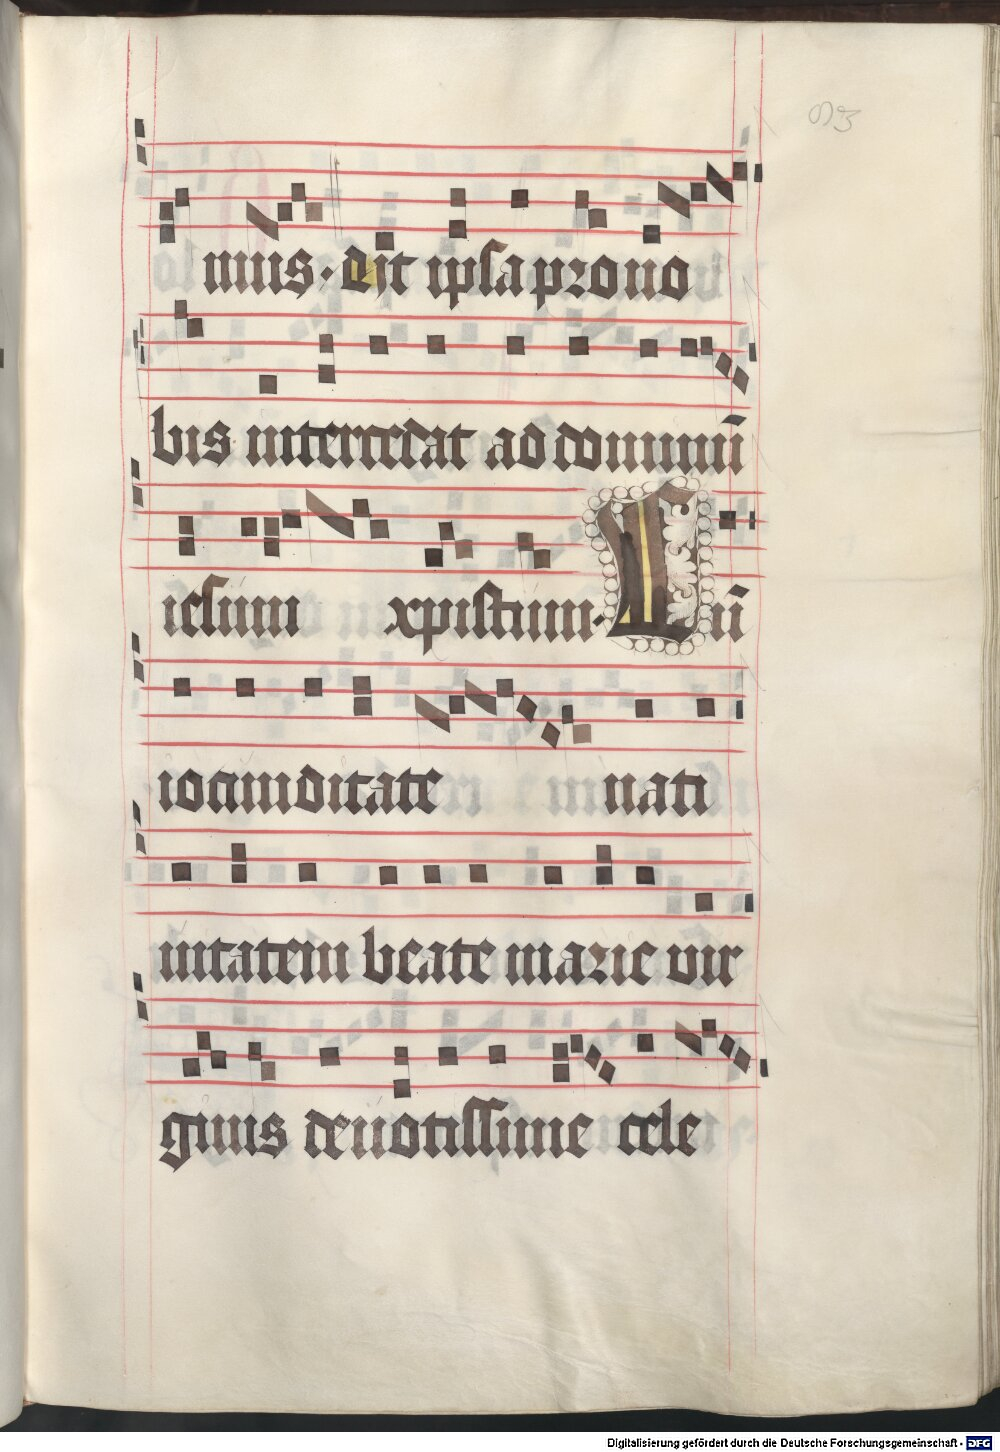 93
mus. Ut ipsa pro no
bis intercedat ad dominū
iesum xpistum. Cū
iocunditate nati
uitatem beate marie vir
ginis deuotissime cele
Digitalisierung gefördert durch die Deutsche Forschungsgemeinschaft - DFG